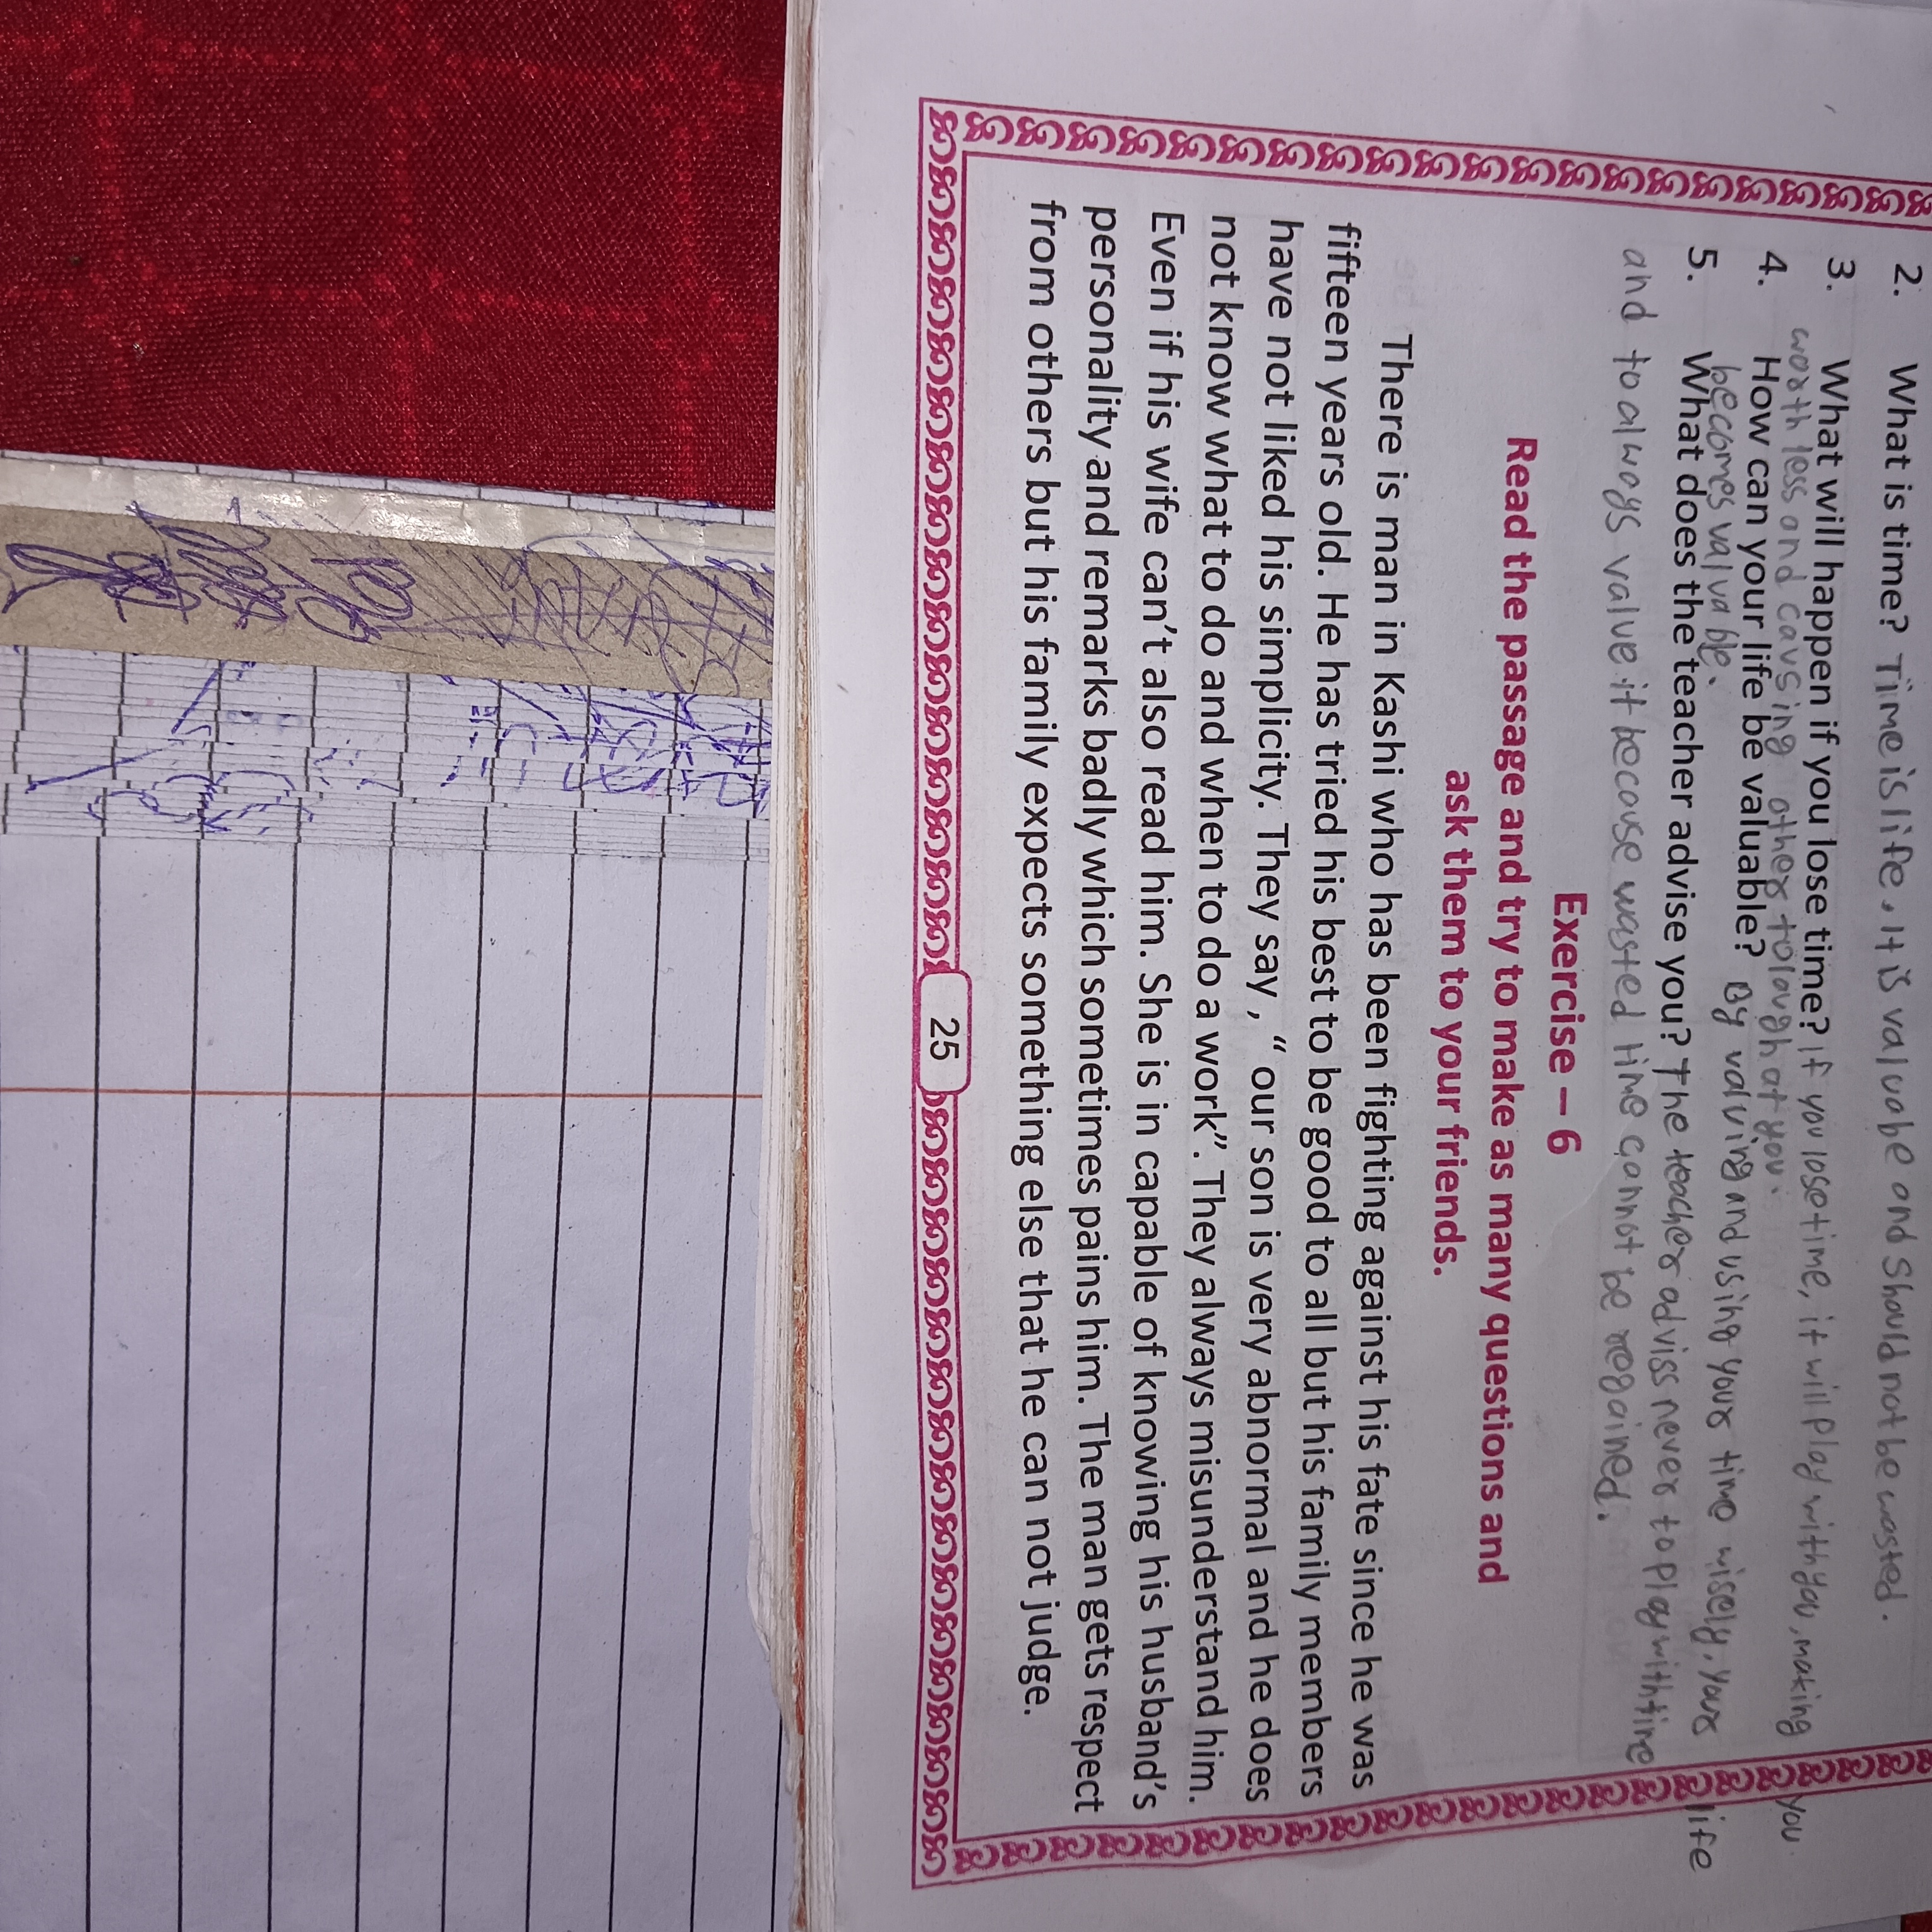 2. What is time? Time is life. It is valuabe and should not be wasted.
3. What will happen if you lose time? if you lose time, it will play with you, making you
worth less and causing other to laugh at you.
4. How can your life be valuable? By valuing and using your time wisely, your life
becomes valuable.
5. What does the teacher advise you? The teacher adviss never to play with time
and to always value it because wasted time cannot be regained.
Exercise – 6
Read the passage and try to make as many questions and
ask them to your friends.
There is man in Kashi who has been fighting against his fate since he was
fifteen years old. He has tried his best to be good to all but his family members
have not liked his simplicity. They say , “ our son is very abnormal and he does
not know what to do and when to do a work”. They always misunderstand him.
Even if his wife can’t also read him. She is in capable of knowing his husband’s
personality and remarks badly which sometimes pains him. The man gets respect
from others but his family expects something else that he can not judge.
25